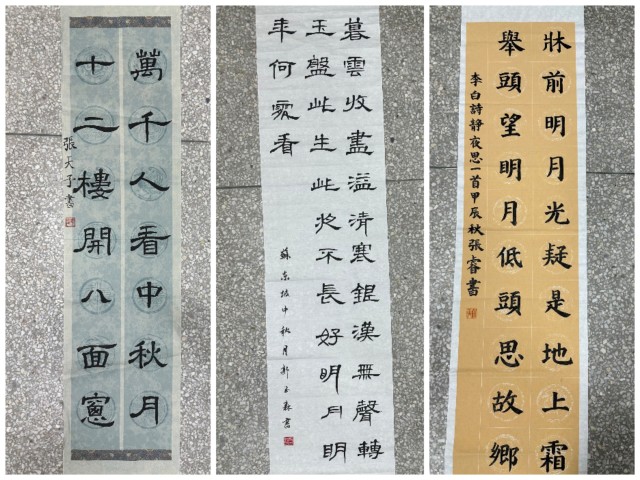 萬千人看中秋月
十二樓開八面窻
張天予書
暮雲收盡溢清寒銀漢無聲轉
玉盤此生此夜不長好明月明
年何處看
蘇東坡中秋月
牀前明月光疑是地上霜
舉頭望明月低頭思故鄉
李白詩靜夜思一首甲辰秋張睿書